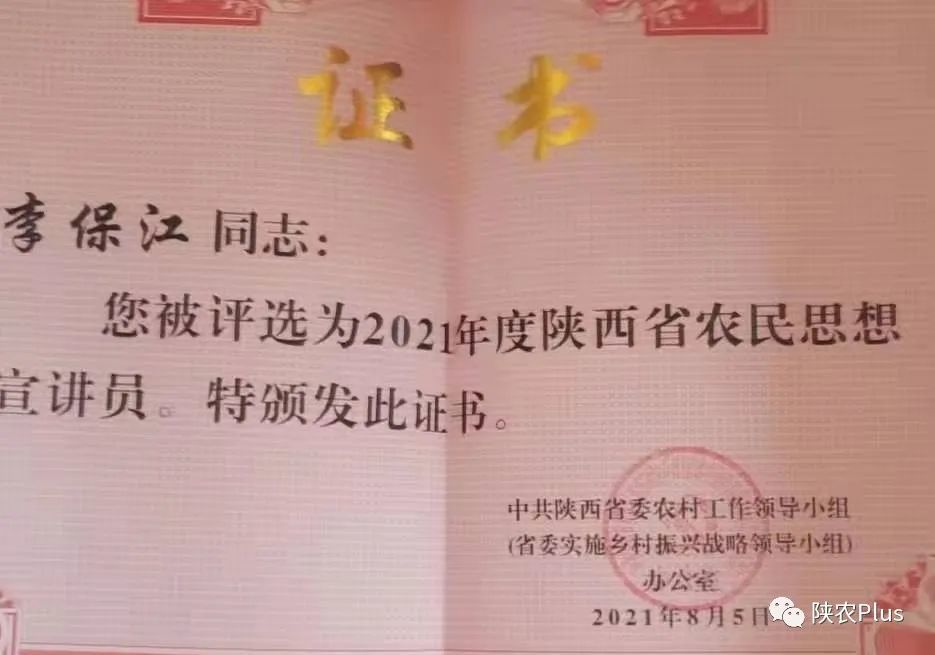 证书
李保江同志：
您被评选为2021年度陕西省农民思想
宣讲员。特颁发此证书。
中共陕西省委农村工作领导小组
(省委实施乡村振兴战略领导小组)
办公室
2021年8月5日
陕农Plus